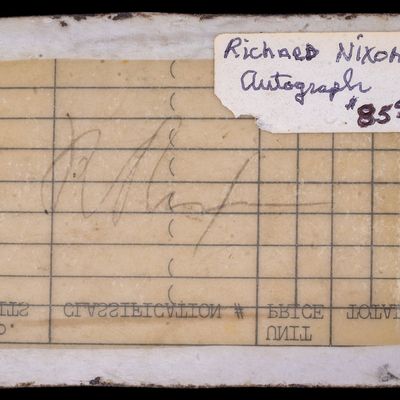 Richard Nixon
Autograph
$85
R Nixon
CLASSIFICATION # PRICE TOTAL
UNIT